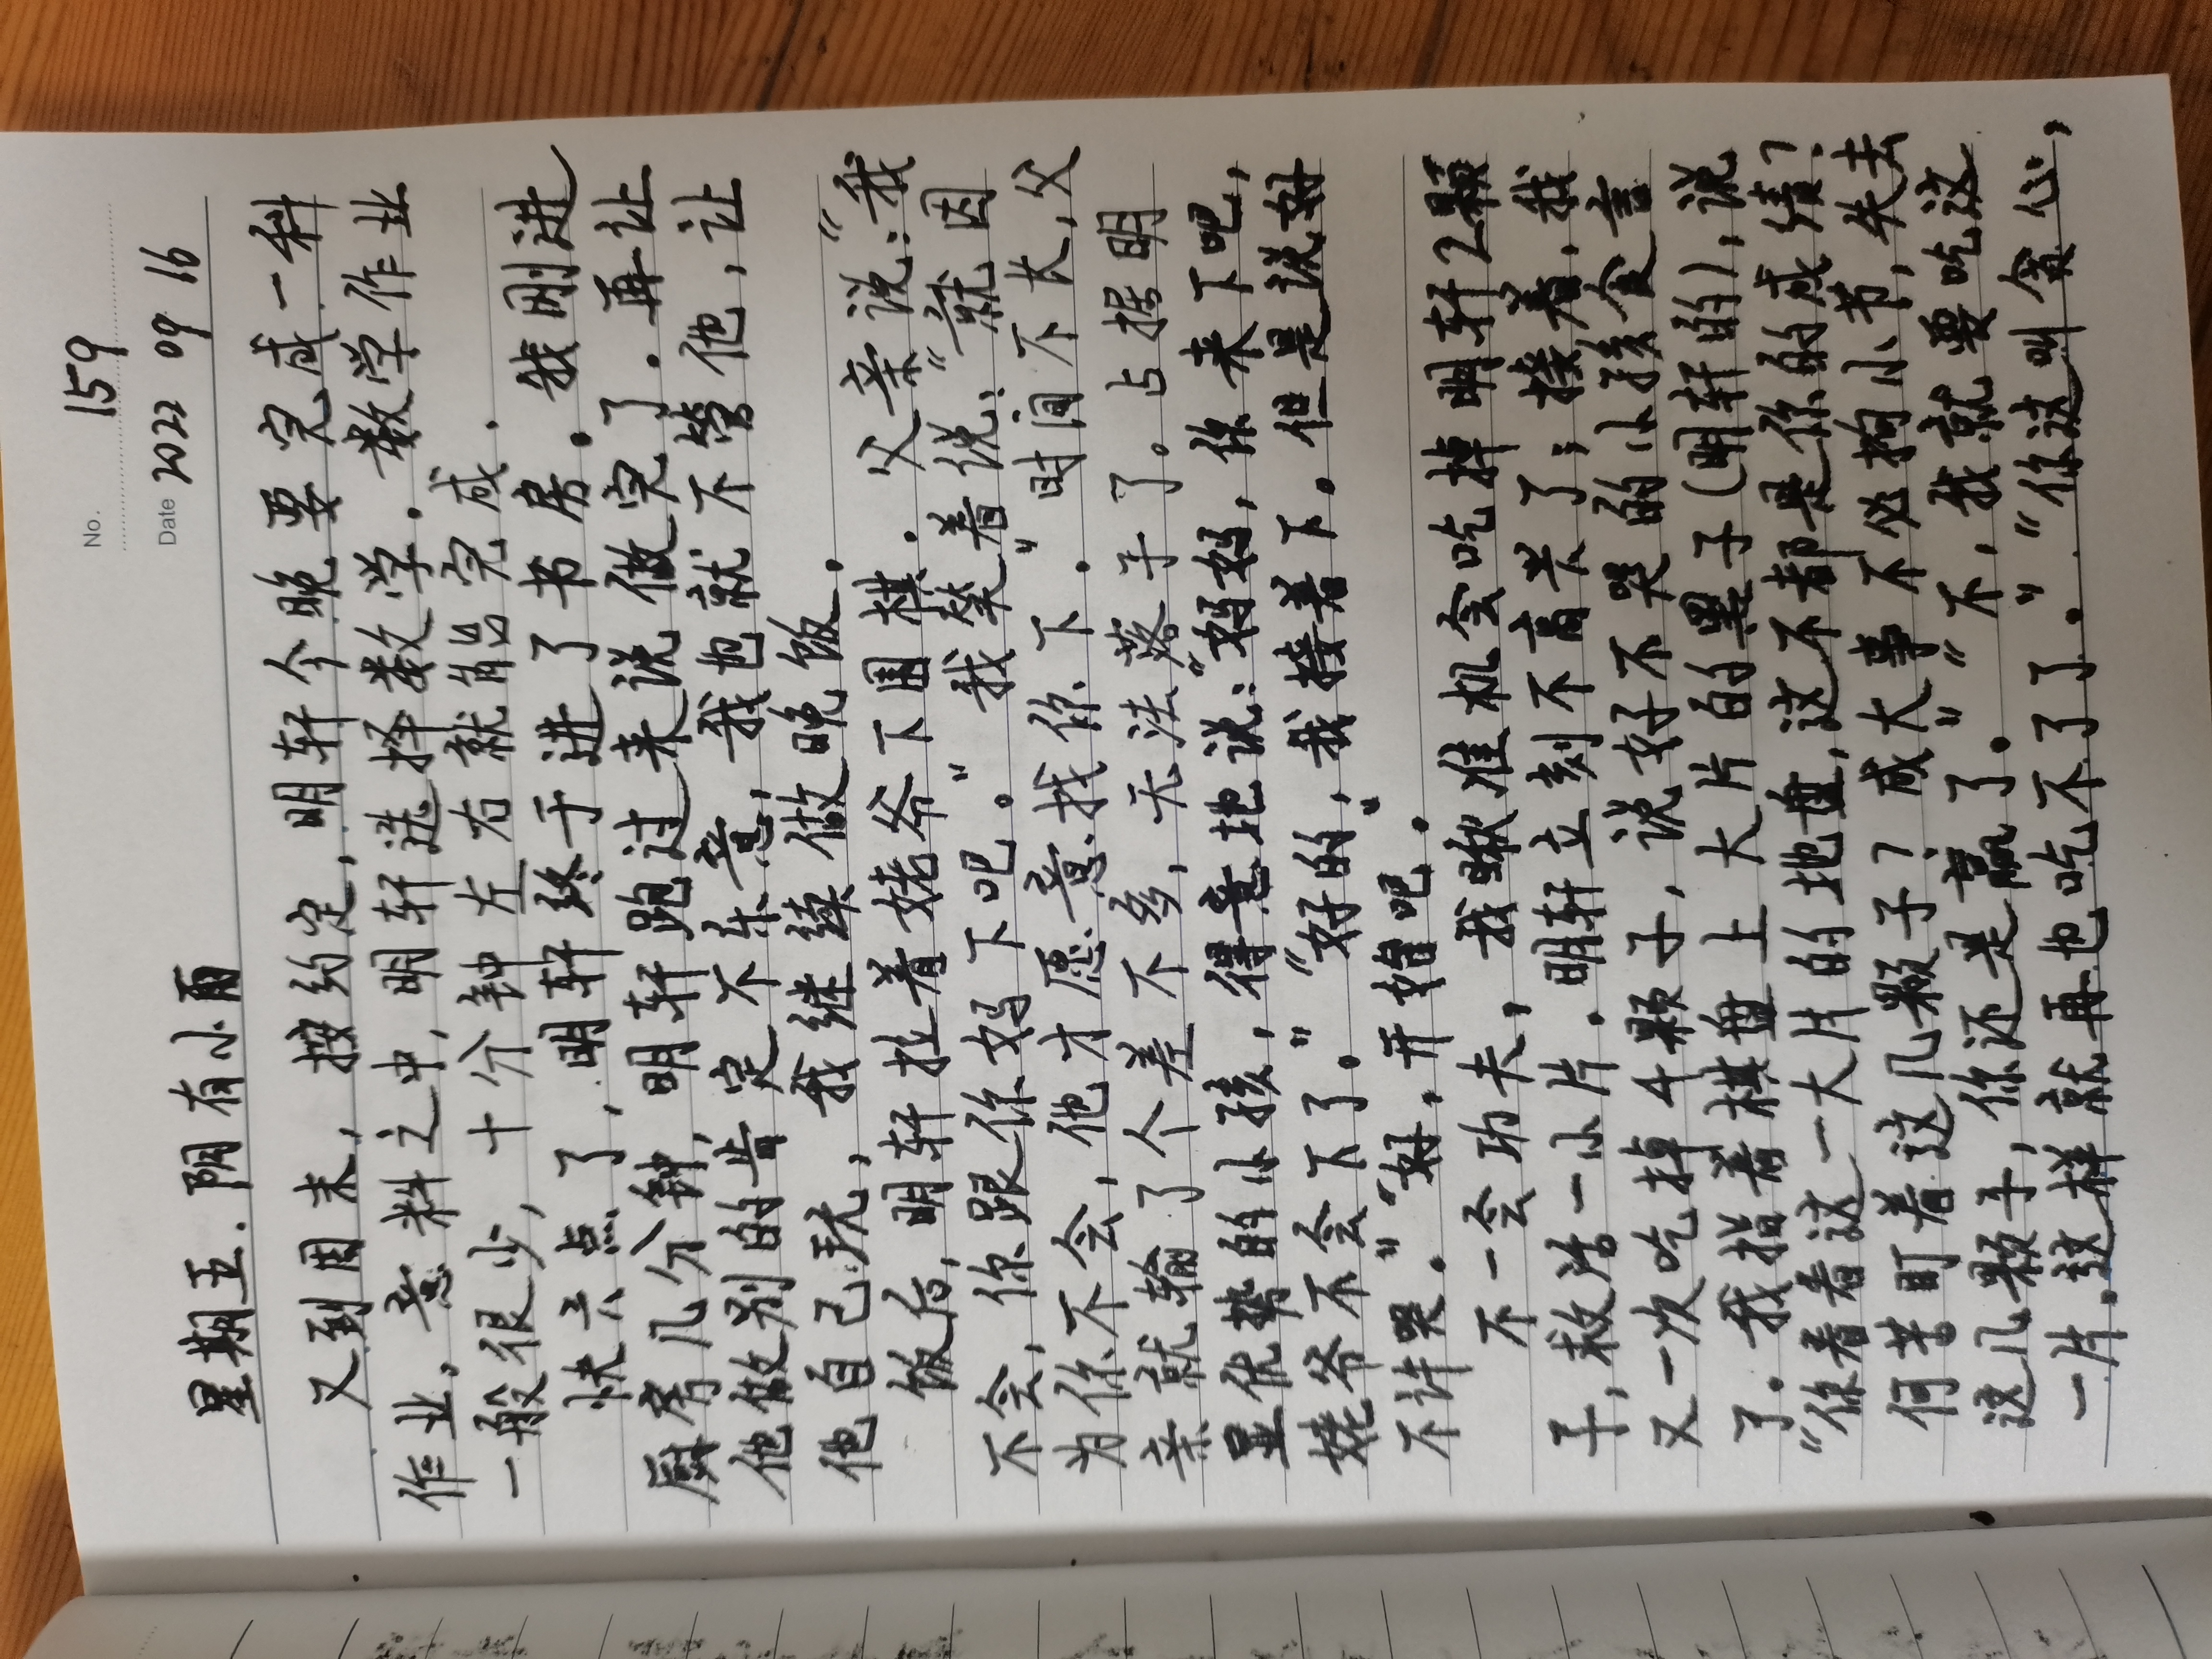 No. 159
Date 2022 09 16
星期五. 阴有小雨
又到周末, 按约定, 明轩今晚要完成一科
作业, 意料之中, 明轩选择数学. 数学作业
一般很少, 十分钟左右就能完成.
快六点了, 明轩终于进了书房. 我刚进
厨房几分钟, 明轩跑过来说做完了. 再让
他做别的肯定不乐意, 我也就不管他, 让
他自己玩, 我继续做晚饭.
饭后, 明轩拉着姥爷下围棋. 父亲说: “我
不会, 你跟你妈下吧。” 我笑着说: “就因
为你不会, 他才愿意找你下. ” 时间不长, 父
亲就输了个差不多, 无法落子了。占据明
显优势的小孩, 得意地说: “妈妈, 你来下吧,
姥爷不会下了。” “好的, 我接着下. 但是说好
不许哭。” “好, 开始吧. ”
不一会功夫, 我瞅准机会吃掉明轩2颗
子, 救活一小片. 明轩立刻不高兴了; 接着, 我
又一次吃掉4颗子, 说好了不哭的小孩食言
了。我指着棋盘上大片的黑子(明轩的), 说
“你看看这一大片的地盘, 这不都是你的成绩?
何苦盯着这几颗子? 成大事不必拘小节, 失去
这几颗子, 你还是赢了。” “不, 我就要吃这
一片. 这样就再也吃不了了。” “你这叫贪心,